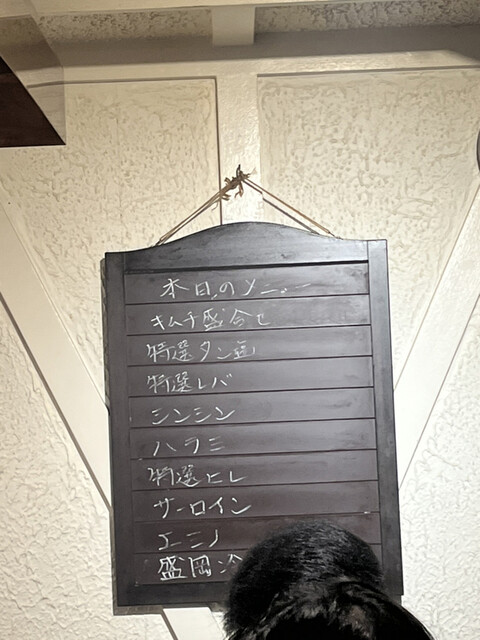 本日のメニュー
キムチ盛合せ
特選タン
特選レバ
シンシン
ハラミ
特選ヒレ
サーロイン
盛岡冷